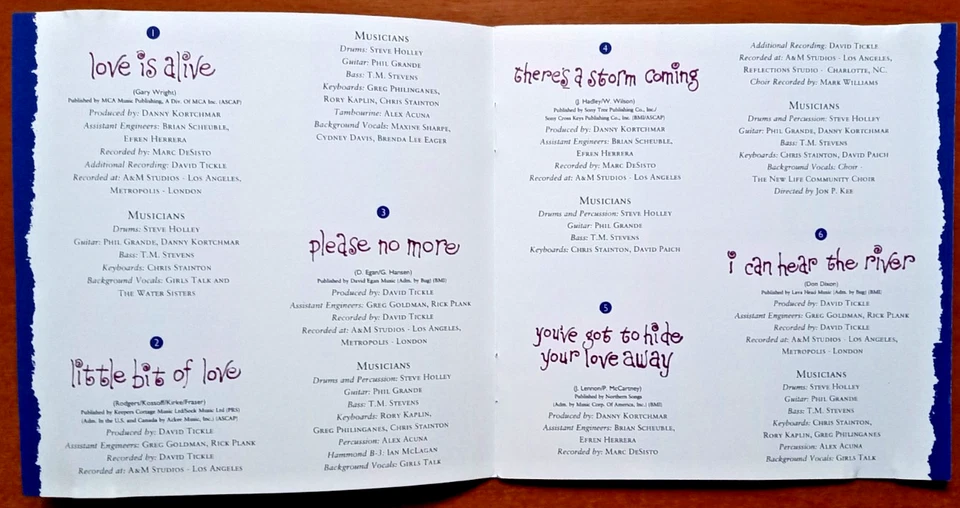 1
love is alive
(Gary Wright)
Published by MCA Music Publishing, A Div. Of MCA Inc. (ASCAP)
Produced by: DANNY KORTCHMAR
Assistant Engineers: BRIAN SCHEUBLE,
EFREN HERRERA
Recorded by: MARC DESISTO
Additional Recording: DAVID TICKLE
Recorded at: A&M STUDIOS - LOS ANGELES,
METROPOLIS - LONDON
MUSICIANS
Drums: STEVE HOLLEY
Guitar: PHIL GRANDE, DANNY KORTCHMAR
Bass: T.M. STEVENS
Keyboards: CHRIS STAINTON
Background Vocals: GIRLS TALK AND
THE WATER SISTERS
2
little bit of love
(Rodgers/Kossoff/Kirke/Fraser)
Published by Keepers Cottage Music Ltd/Sock Music Ltd (PRS)
(Adm. In the U.S. and Canada by Acker Music, Inc.) (ASCAP)
Produced by: DAVID TICKLE
Assistant Engineers: GREG GOLDMAN, RICK PLANK
Recorded by: DAVID TICKLE
Recorded at: A&M STUDIOS - LOS ANGELES
MUSICIANS
Drums: STEVE HOLLEY
Guitar: PHIL GRANDE
Bass: T.M. STEVENS
Keyboards: GREG PHILINGANES,
RORY KAPLIN, CHRIS STAINTON
Tambourine: ALEX ACUNA
Background Vocals: MAXINE SHARPE,
CYDNEY DAVIS, BRENDA LEE EAGER
3
please no more
(D. Egan/G. Hansen)
Published by David Egan Music (Adm. by Bug) (BMI)
Produced by: DAVID TICKLE
Assistant Engineers: GREG GOLDMAN, RICK PLANK
Recorded by: DAVID TICKLE
Recorded at: A&M STUDIOS - LOS ANGELES,
METROPOLIS - LONDON
MUSICIANS
Drums and Percussion: STEVE HOLLEY
Guitar: PHIL GRANDE
Bass: T.M. STEVENS
Keyboards: RORY KAPLIN,
GREG PHILINGANES, CHRIS STAINTON
Percussion: ALEX ACUNA
Hammond B-3: IAN MCLAGAN
Background Vocals: GIRLS TALK
4
there's a storm coming
(J. Hadley/W. Wilson)
Published by Sony Tree Publishing Co., Inc./
Sony Cross Keys Publishing Co., Inc. (BMI/ASCAP)
Produced by: DANNY KORTCHMAR
Assistant Engineers: BRIAN SCHEUBLE,
EFREN HERRERA
Recorded by: MARC DESISTO
Recorded at: A&M STUDIOS - LOS ANGELES
MUSICIANS
Drums and Percussion: STEVE HOLLEY
Guitar: PHIL GRANDE
Bass: T.M. STEVENS
Keyboards: CHRIS STAINTON, DAVID PAICH
5
you've got to hide
your love away
(J. Lennon/P. McCartney)
Published by Northern Songs
(Adm. by Music Corp. Of America, Inc.) (BMI)
Produced by: DANNY KORTCHMAR
Assistant Engineers: BRIAN SCHEUBLE,
EFREN HERRERA
Recorded by: MARC DESISTO
Additional Recording: DAVID TICKLE
Recorded at: A&M STUDIOS - LOS ANGELES,
REFLECTIONS STUDIO - CHARLOTTE, NC.
Choir Recorded by: MARK WILLIAMS
MUSICIANS
Drums and Percussion: STEVE HOLLEY
Guitar: PHIL GRANDE, DANNY KORTCHMAR
Bass: T.M. STEVENS
Keyboards: CHRIS STAINTON, DAVID PAICH
Background Vocals: Choir -
THE NEW LIFE COMMUNITY CHOIR
Directed by JON P. KEE
6
i can hear the river
(Don Dixon)
Published by Lava Head Music (Adm. by Bug) (BMI)
Produced by: DAVID TICKLE
Assistant Engineers: GREG GOLDMAN, RICK PLANK
Recorded by: DAVID TICKLE
Recorded at: A&M STUDIOS - LOS ANGELES,
METROPOLIS - LONDON
MUSICIANS
Drums: STEVE HOLLEY
Guitar: PHIL GRANDE
Bass: T.M. STEVENS
Keyboards: CHRIS STAINTON,
RORY KAPLIN, GREG PHILINGANES
Percussion: ALEX ACUNA
Background Vocals: GIRLS TALK